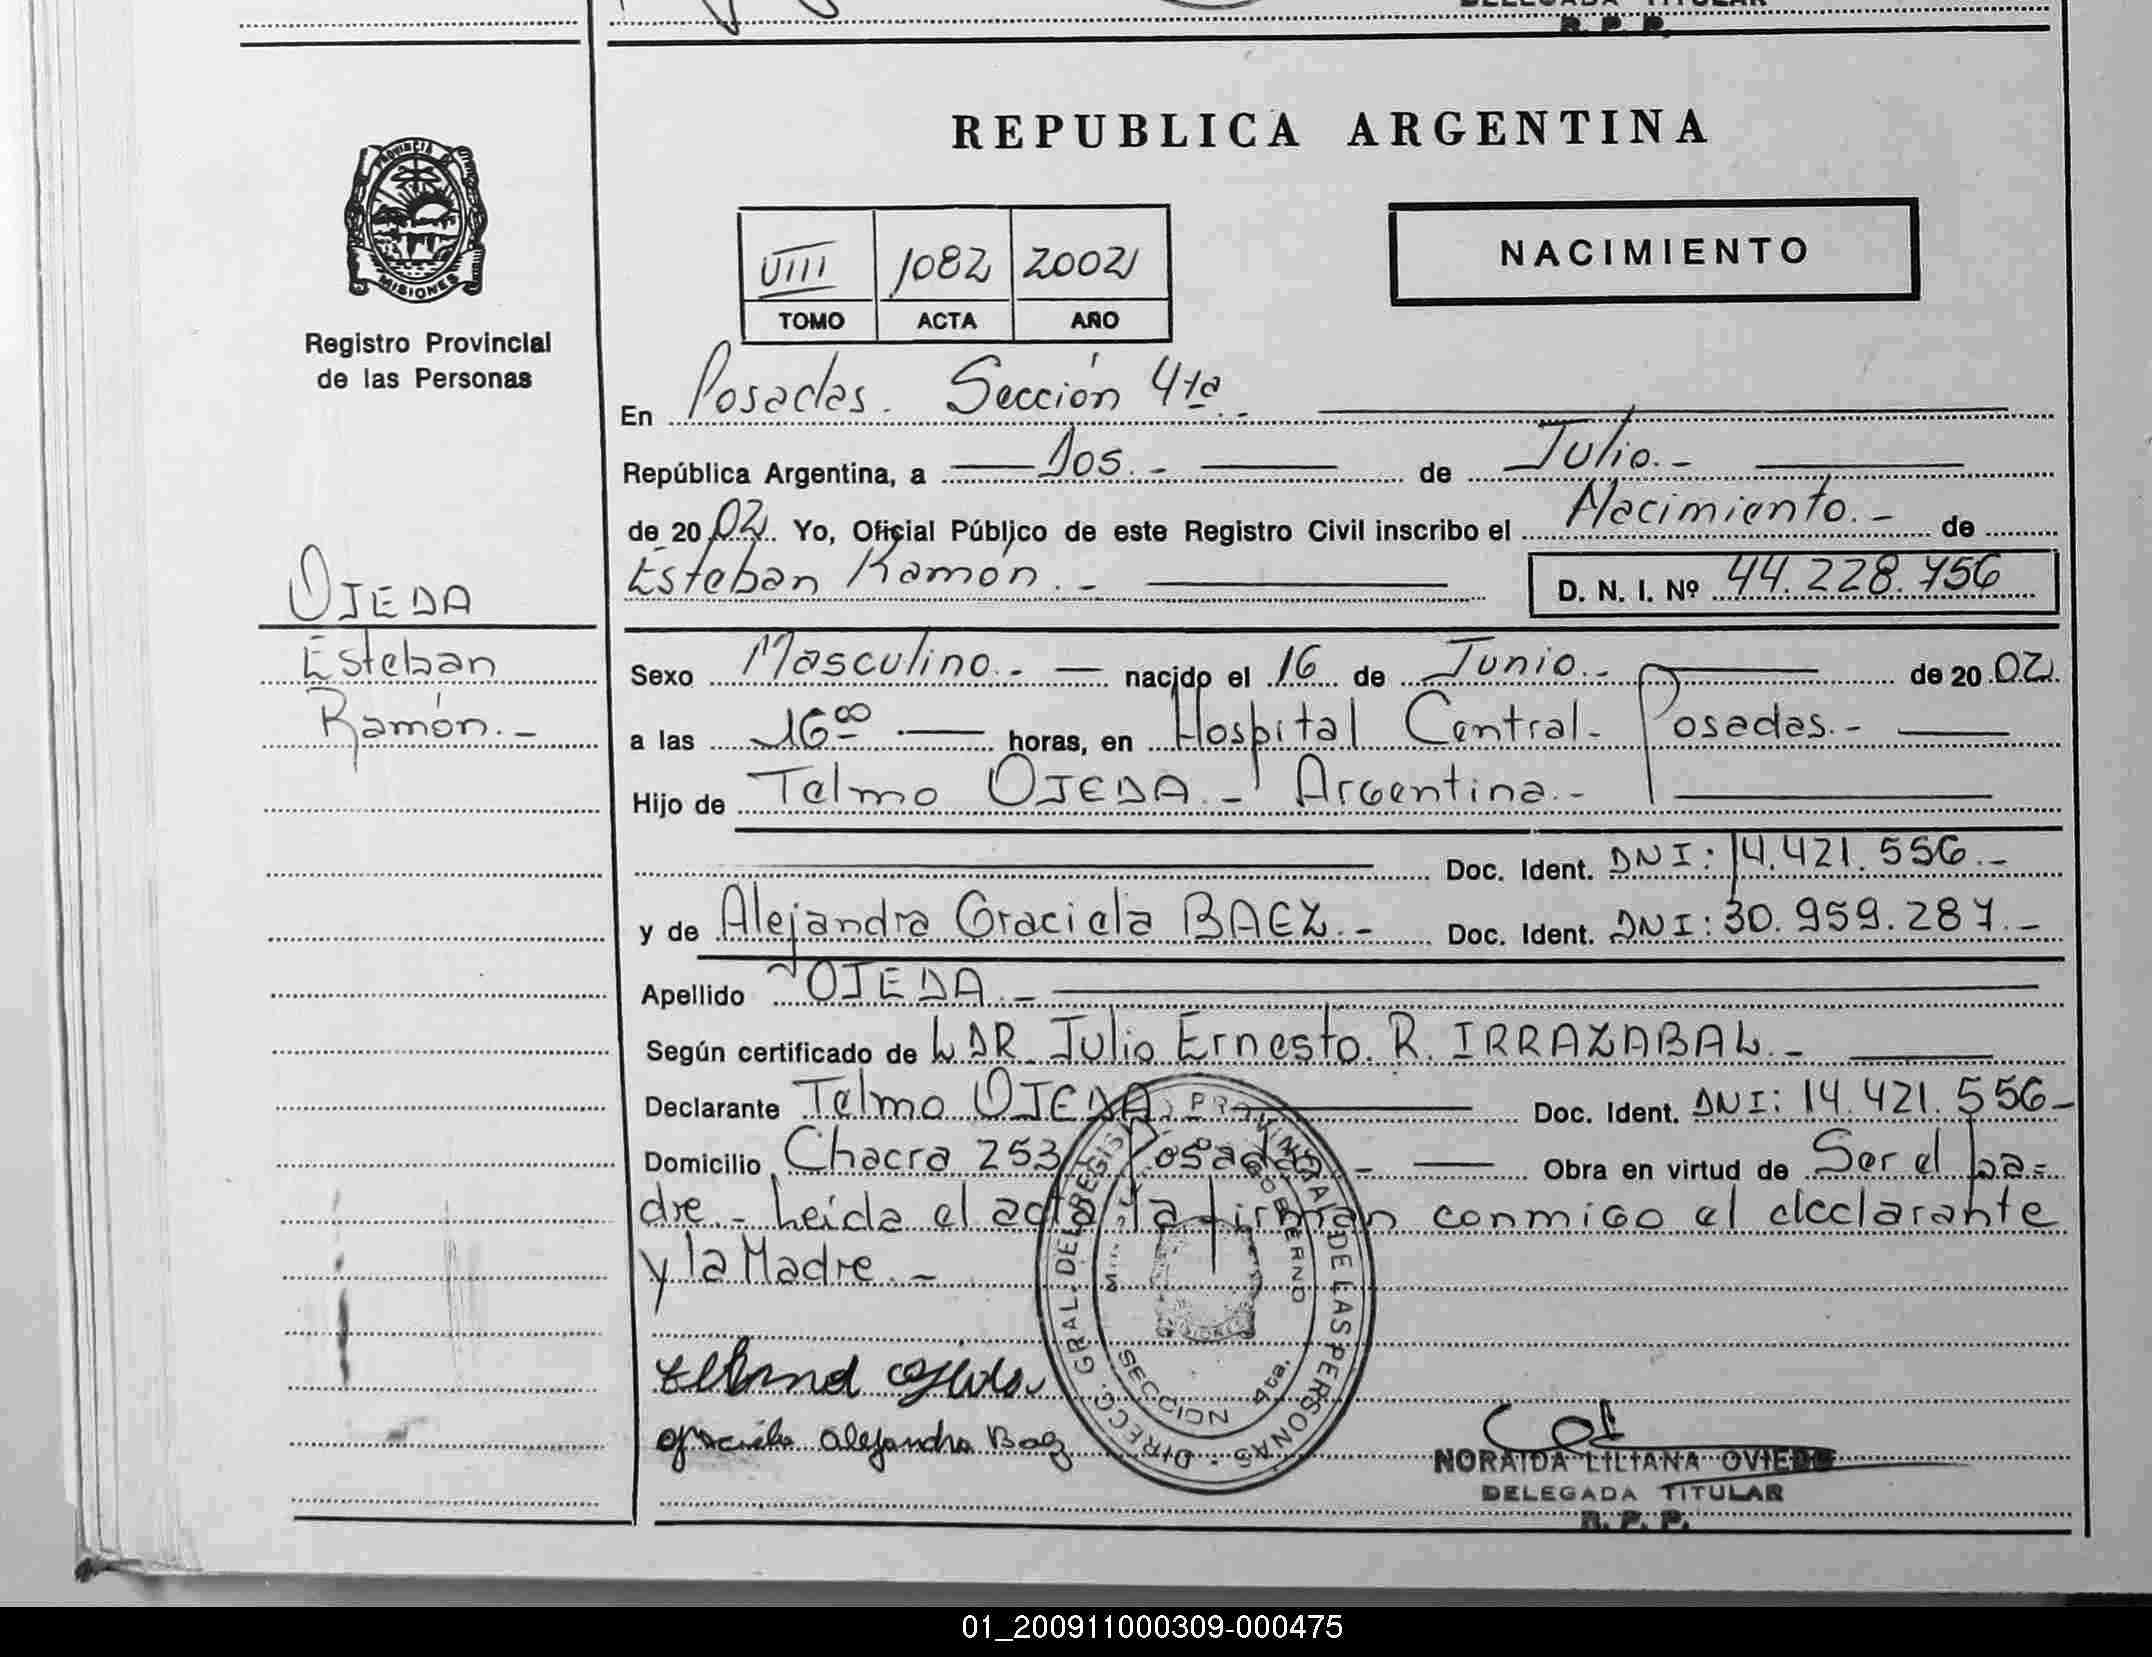 DELEGADA TITULAR
R. P. P.
PROVINCIA DE
MISIONES
Registro Provincial
de las Personas
OJEDA
Esteban
Ramón.-
REPUBLICA ARGENTINA
NACIMIENTO
VIII 1082 2002
TOMO ACTA AÑO
En Posadas. Sección 4ta.-
República Argentina, a Dos.- de Julio.-
de 2002. Yo, Oficial Público de este Registro Civil inscribo el Nacimiento.- de
Esteban Ramón.- D. N. I. Nº 44.228.756
Sexo Masculino.- nacido el 16 de Junio.- de 2002.
a las 16 00 horas, en Hospital Central- Posadas.-
Hijo de Telmo OJEDA.- Argentina.-
Doc. Ident. DNI: 14.421.556.-
y de Alejandra Graciela BAEZ.- Doc. Ident. DNI: 30.959.287.-
Apellido OJEDA.-
Según certificado de L DR. Julio Ernesto. R. IRRAZABAL.-
Declarante Telmo OJEDA Doc. Ident. DNI: 14.421.556-
Domicilio Chacra 253 Posadas.- Obra en virtud de Ser el pa=
dre.- Leida el acta la firman conmigo el declarante
y la Madre.-
DIRECC. GRAL. DEL REGIST. PROVINCIAL DE LAS PERSONAS
GOBIERNO
SECCION 4ta.
Graciela Alejandra Baez
NORAIDA LILIANA OVIEDO
DELEGADA TITULAR
R. P. P.
01_200911000309-000475